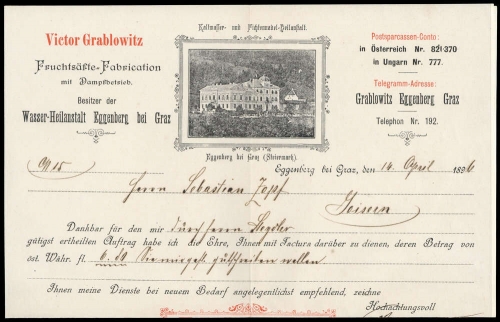 Victor Grablowitz
Fruchtsäfte-Fabrication
mit Dampfbetrieb.
Besitzer der
Wasser-Heilanstalt Eggenberg bei Graz
Kaltwasser- und Fichtennadel-Heilanstalt.
Eggenberg bei Graz (Steiermark).
Postsparcassen-Conto:
in Österreich Nr. 821·370
in Ungarn Nr. 777.
Telegramm-Adresse:
Grablowitz Eggenberg Graz
Telephon Nr. 192.
Eggenberg bei Graz, den 14. April 1896
Herrn Sebastian Zopf
Dankbar für den mir durch Herrn
gütigst ertheilten Auftrag habe ich die Ehre, Ihnen mit Factura darüber zu dienen, deren Betrag von
öst. Währ. fl. 6.80 Sie mir gest. gutschreiben wollen
Ihnen meine Dienste bei neuem Bedarf angelegentlichst empfehlend, zeichne
Hochachtungsvoll